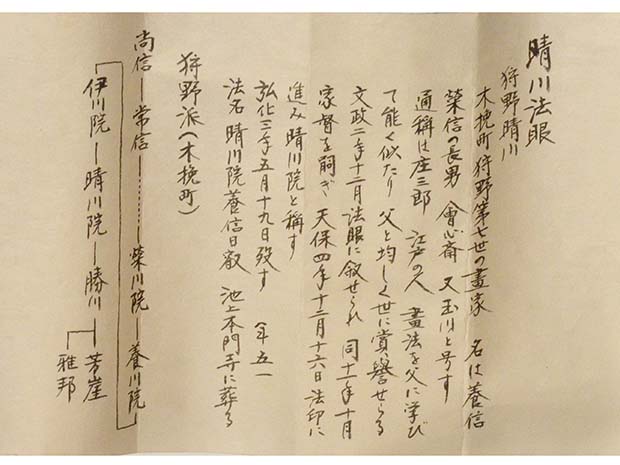 晴川法眼
狩野晴川
木挽町狩野第七世の画家　名は養信
榮信の長男　會心斎　又玉川と号す
通称は庄三郎　江戸の人　畫法を父に学び
て能く似たり　父と均しく世に賞誉せらる
文政二年十二月法眼に叙せられ　同十一年十月
家督を嗣ぎ　天保四年十二月十六日法印に
進み晴川院と稱す
弘化三年五月十九日歿す　年五一
法名　晴川院養信日叡　池上本門寺に葬る
狩野派(木挽町)
尚信―常信………榮川院―養川院
伊川院―晴川院―勝川―芳崖
雅邦